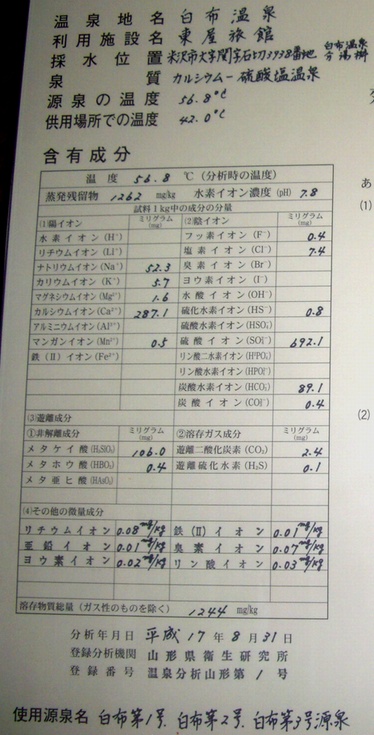 温泉地名 白布温泉
利用施設名 東屋旅館
採水位置 米沢市大字関字石切3938番地 白布温泉分湯桝
泉質 カルシウムー硫酸塩温泉
源泉の温度 56.8℃
供用場所での温度 42.0℃
含有成分
温度 56.8 ℃ (分析時の温度)
蒸発残留物 1262 mg/kg 水素イオン濃度 (pH) 7.8
試料1kg中の成分の分量
(1)陽イオン ミリグラム(mg) (2)陰イオン ミリグラム(mg)
水素イオン(H⁺) フッ素イオン(F⁻) 0.4
リチウムイオン(Li⁺) 塩素イオン(Cl⁻) 7.4
ナトリウムイオン(Na⁺) 52.3 臭素イオン(Br⁻)
カリウムイオン(K⁺) 5.7 ヨウ素イオン(I⁻)
マグネシウムイオン(Mg²⁺) 1.6 水酸イオン(OH⁻)
カルシウムイオン(Ca²⁺) 287.1 硫化水素イオン(HS⁻) 0.8
アルミニウムイオン(Al³⁺) 硫酸水素イオン(HSO₄⁻)
マンガンイオン(Mn²⁺) 0.5 硫酸イオン(SO₄²⁻) 692.1
鉄(Ⅱ)イオン(Fe²⁺) リン酸二水素イオン(H₂PO₄⁻)
リン酸水素イオン(HPO₄²⁻)
炭酸水素イオン(HCO₃⁻) 89.1
炭酸イオン(CO₃²⁻) 0.4
(3)遊離成分
①非解離成分 ミリグラム(mg) ②溶存ガス成分 ミリグラム(mg)
メタケイ酸(H₂SiO₃) 106.0 遊離二酸化炭素(CO₂) 2.4
メタホウ酸(HBO₂) 0.4 遊離硫化水素(H₂S) 0.1
メタ亜ヒ酸(HAsO₂)
(4)その他の微量成分
リチウムイオン 0.08mg/kg 鉄(Ⅱ)イオン 0.01mg/kg
亜鉛イオン 0.01mg/kg 臭素イオン 0.07mg/kg
ヨウ素イオン 0.02mg/kg リン酸イオン 0.03mg/kg
溶存物質総量(ガス性のものを除く) 1244 mg/kg
分析年月日 平成17年8月31日
登録分析機関 山形県衛生研究所
登録番号 温泉分析山形第1号
使用源泉名 白布第1号、白布第2号、白布第3号源泉
あ
(1)
(2)